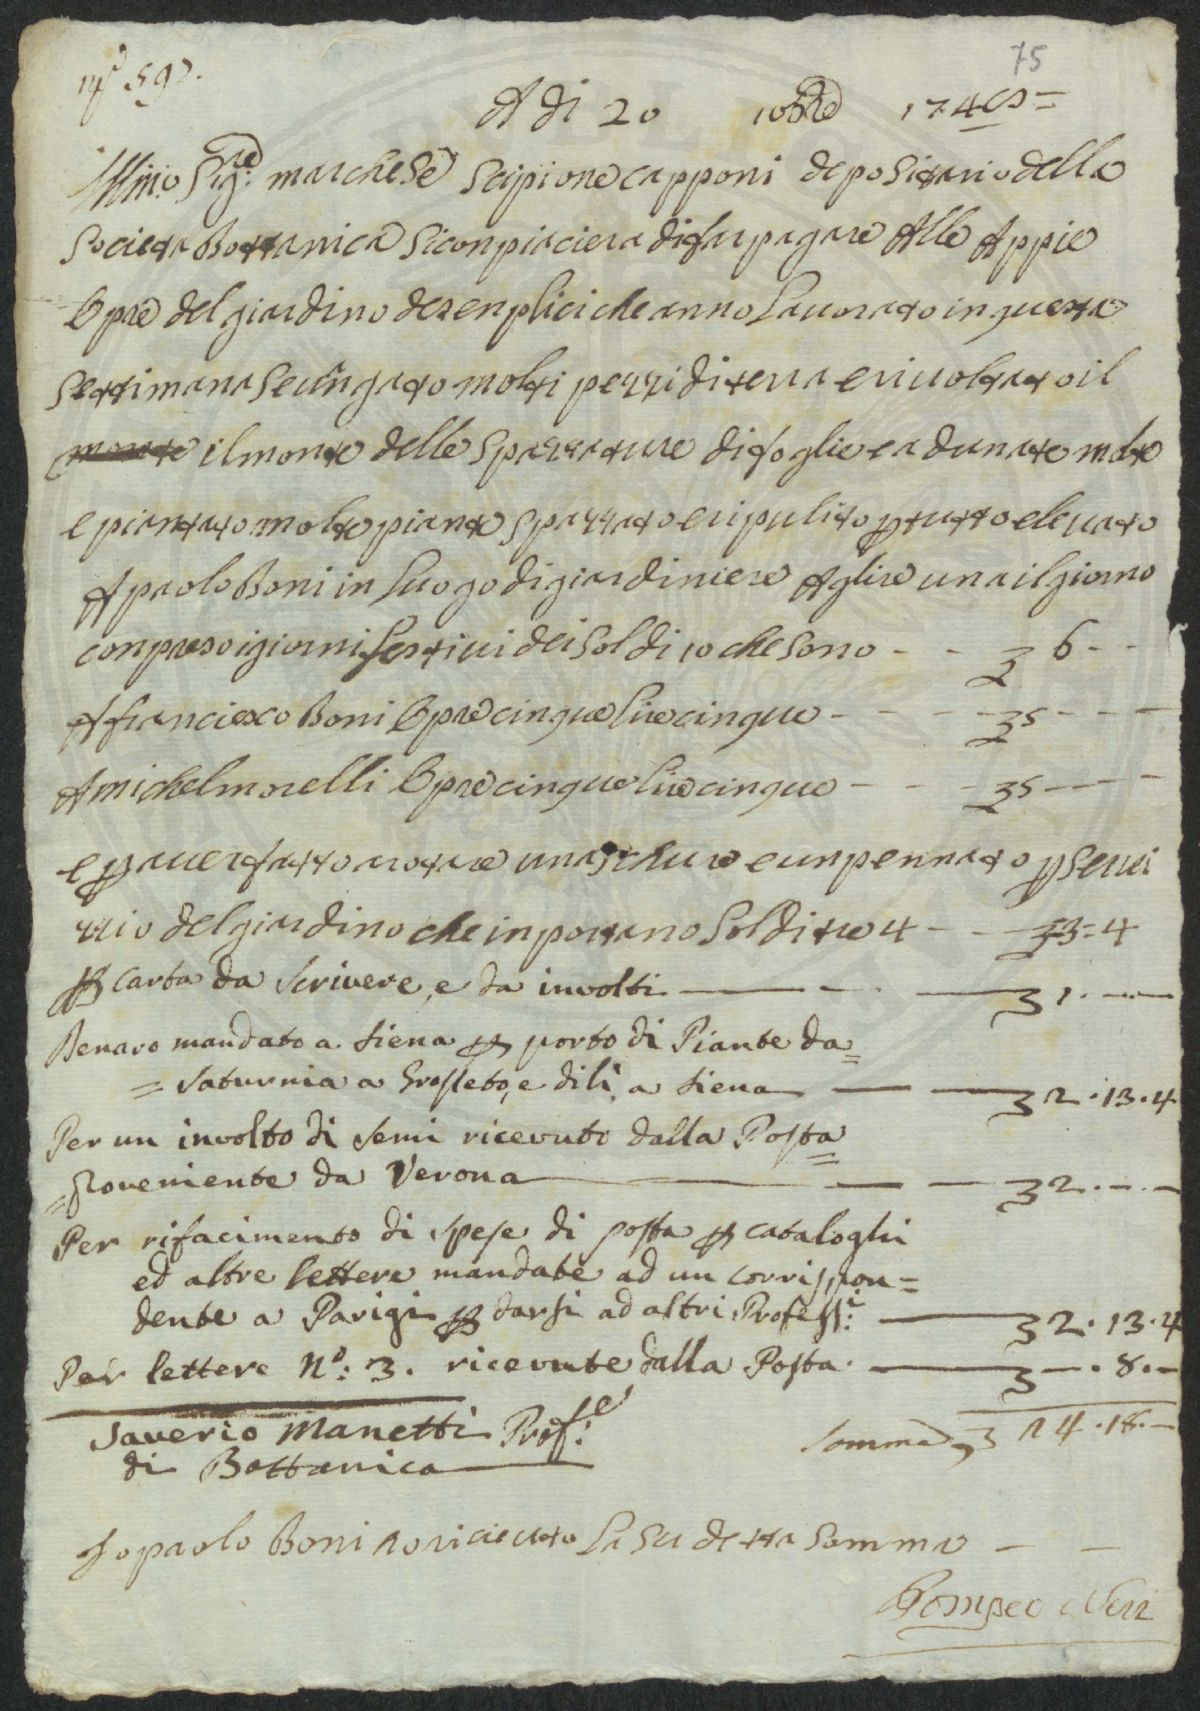 nº 59.
75
A di 20 10bre 174
Illmo Sigre marchese Scipione capponi depositario della
Societa Bottanica si conpiaciera di far pagare Alle Appie
Opre del giardino de senplici che anno Lauorato in questa
settimana se uangato molti pezzi di terra e riuoltato il
monte il monte delle spazzature di foglie e adunate molte
e piantato molte piante spazzato e ripulito p tutto e leuato
A paolo Boni in Luogo di giardiniere A glire una il giorno
conpreso i giorni festiui dei soldi 10 che sono - - £ 6 - -
A franciesco Boni Opre cinque lire cinque - - - - £ 5 - - -
A michel morelli Opre cinque lire cinque - - - £ 5 - - -
e p auer fatto arotare una schure e un pennato p serui
zzio del giardino che inportano soldi tre 4 - - £ 3 = 4
p carta da scrivere, e da involti — - £ 1 . - . -
Denaro mandato a Siena p porto di Piante da =
= Saturnia a Grosseto, e di li, a Siena — — £ 2 . 13 . 4
Per un involto di semi ricevuto dalla Posta =
= proveniente da Verona — — £ 2 . - . -
Per rifacimento di spese di posta p cataloghi
ed altre lettere mandate ad un corrispon =
dente a Parigi p darsi ad altri Professi: — £ 2 . 13 . 4
Per lettere Nº: 3. ricevute dalla Posta. — £ — . 8 . —
Saverio Manetti Profe:
di Bottanica
Somma £ 24 . 18 . —
Io paolo Boni o riceuto La su detta Somma — —
Pompeo Neri